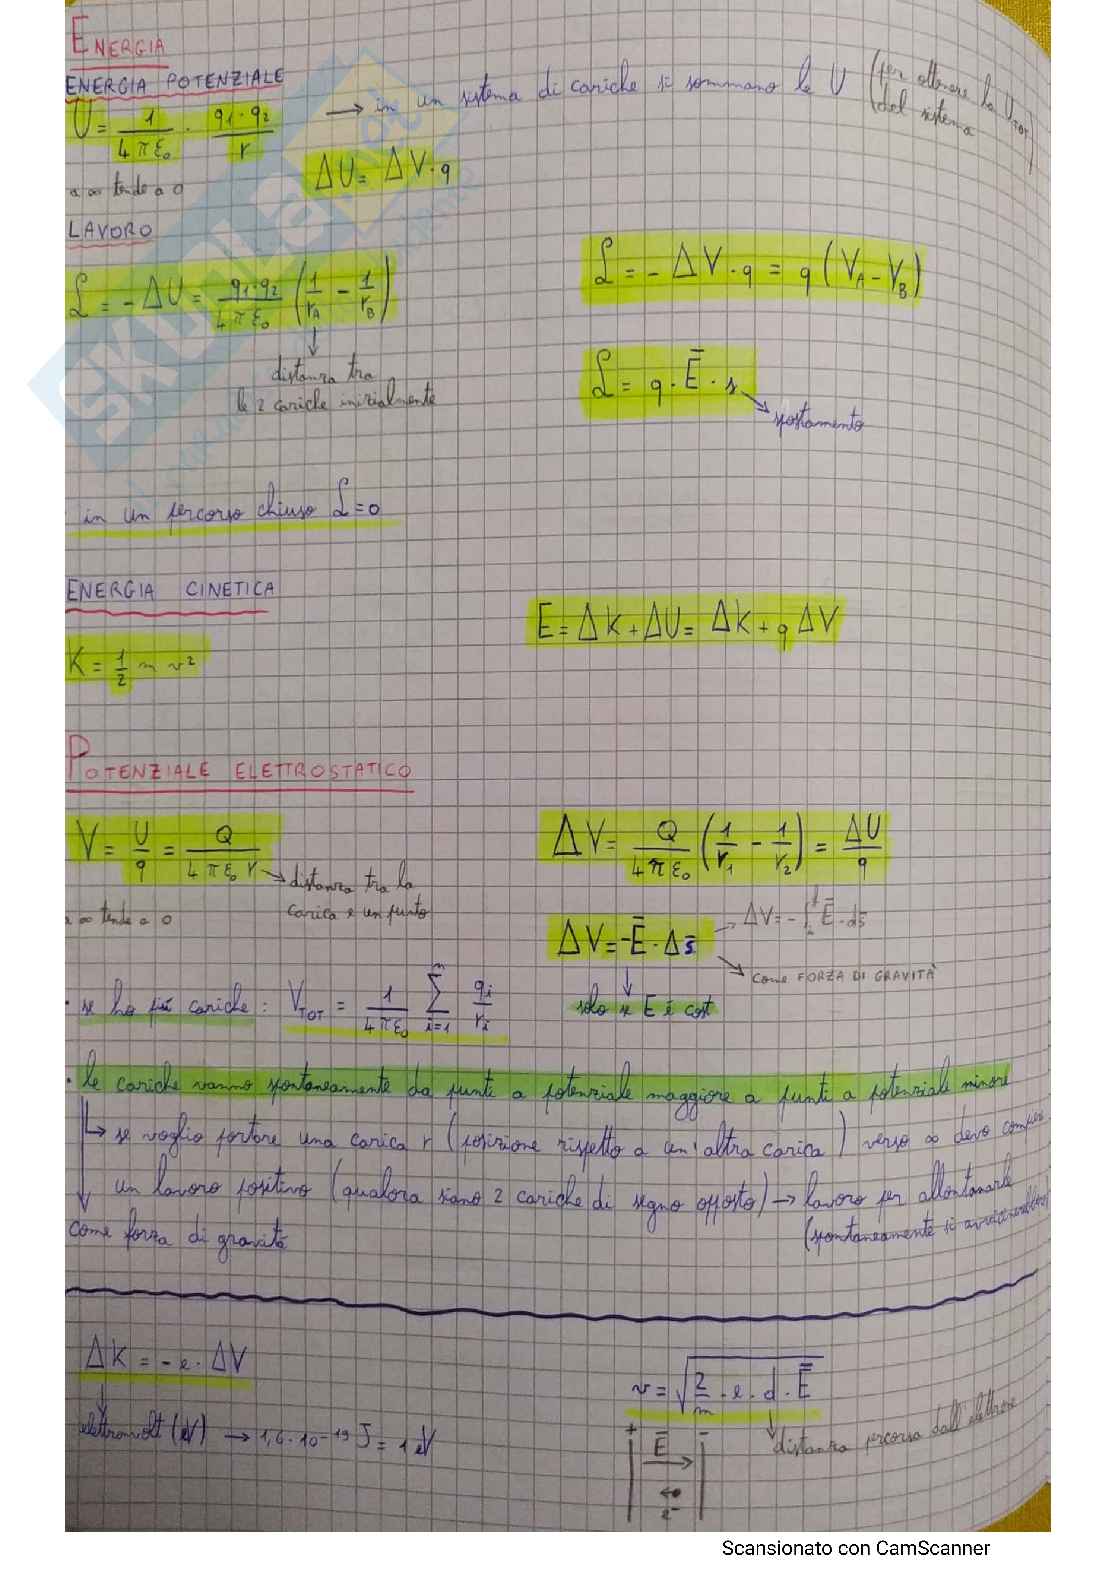 ENERGIA
ENERGIA POTENZIALE
U = 1/4πε₀ · q₁·q₂/r → in un sistema di cariche si sommano le U (per ottenere la U_TOT del sistema)
a ∞ tende a 0
ΔU = ΔV·q
LAVORO
L = -ΔU = q₁·q₂/4πε₀ (1/r_A - 1/r_B)
L = -ΔV·q = q(V_A - V_B)
distanza tra
le 2 cariche inizialmente
L = q·Ē·s
spostamento
in un percorso chiuso L=0
ENERGIA CINETICA
K = 1/2 m v²
E = ΔK + ΔU = ΔK + qΔV
POTENZIALE ELETTROSTATICO
V = U/q = Q/4πε₀r → distanza tra la
carica e un punto
a ∞ tende a 0
ΔV = Q/4πε₀ (1/r₁ - 1/r₂) = ΔU/q
ΔV = -Ē·Δs̄ → ΔV = -∫ Ē·ds̄
come FORZA DI GRAVITÀ
solo se E è cost
· se ho più cariche: V_TOT = 1/4πε₀ Σ_{i=1}^{n} q_i/r_i
· le cariche vanno spontaneamente da punti a potenziale maggiore a punti a potenziale minore
↳ se voglio portare una carica r (posizione rispetto a un'altra carica) verso ∞ devo compiere
un lavoro positivo (qualora siano 2 cariche di segno opposto) → lavoro per allontanarle
(spontaneamente si avvicinerebbero)
come forza di gravità
ΔK = -e·ΔV
elettronvolt (eV) → 1,6·10⁻¹⁹ J = 1 eV
v = √(2/m · e · d · Ē)
distanza percorsa dall'elettrone
+ Ē -
e⁻
Scansionato con CamScanner